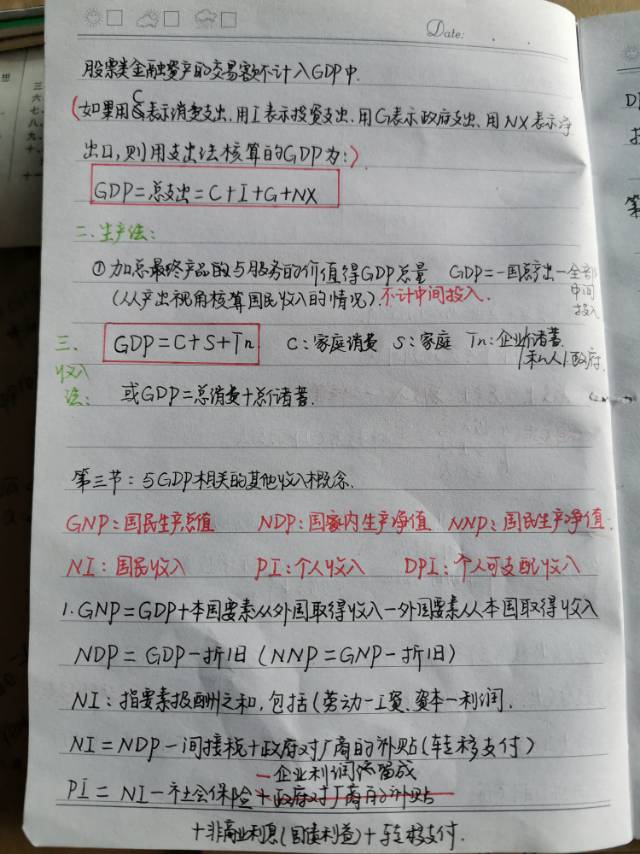 Date:
股票类金融资产的交易额不计入GDP中.
(如果用C表示消费支出,用I表示投资支出,用G表示政府支出、用NX表示净
出口,则用支出法核算的GDP为:)
GDP=总支出=C+I+G+NX
二.生产法:
①加总最终产品的与服务的价值得GDP总量 GDP=一国总产出-全部
中间
投入
(从产出视角核算国民收入的情况).不计中间投入.
三、
收入
法:
GDP=C+S+Tn C:家庭消费 S:家庭 Tn:企业储蓄
/私人/政府.
或GDP=总消费+总储蓄.
第三节:与GDP相关的其他收入概念.
GNP:国民生产总值 NDP:国家内生产净值 NNP:国民生产净值.
NI:国民收入 PI:个人收入 DPI:个人可支配收入
1.GNP=GDP+本国要素从外国取得收入-外国要素从本国取得收入
NDP=GDP-折旧(NNP=GNP-折旧)
NI:指要素报酬之和,包括(劳动-工资、资本-利润.
NI=NDP-间接税+政府对厂商的补贴(转移支付)
-企业利润留成
PI=NI-社会保险+政府对厂商的补贴
+非商业利息(国债利息)+转移支付.